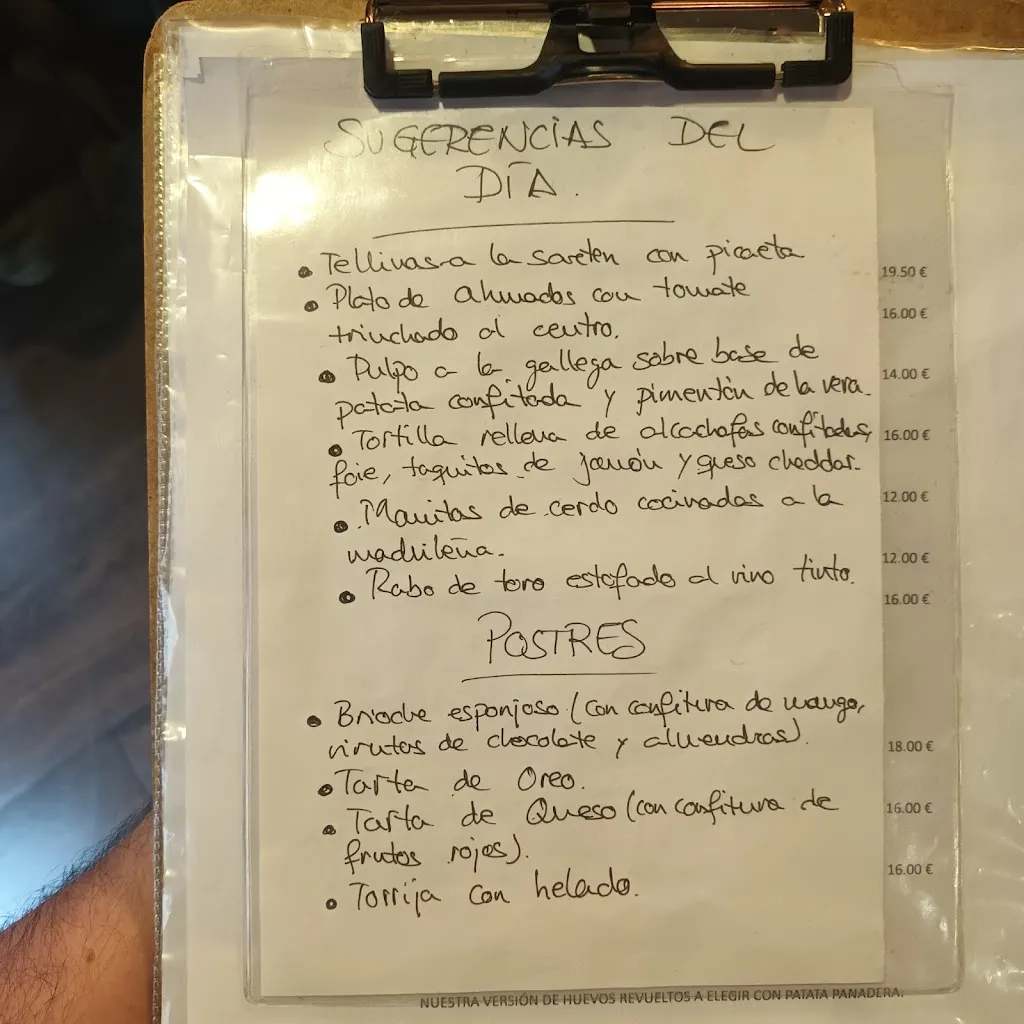 SUGERENCIAS DEL
DÍA.
• Tellinas a la sarten con picaeta
19.50 €
• Plato de ahumados con tomate
16.00 €
trinchado al centro.
• Pulpo a la gallega sobre base de
14.00 €
patata confitada y pimentón de la vera.
• Tortilla rellena de alcachofas confitadas,
16.00 €
foie, taquitos de jamón y queso cheddar.
• Manitas de cerdo cocinadas a la
12.00 €
madrileña.
12.00 €
• Rabo de toro estofado al vino tinto.
16.00 €
POSTRES
• Brioche esponjoso (con confitura de mango,
virutas de chocolate y almendras).
18.00 €
• Tarta de Oreo.
• Tarta de Queso (con confitura de
16.00 €
frutos rojos).
16.00 €
• Torrija con helado.
NUESTRA VERSIÓN DE HUEVOS REVUELTOS A ELEGIR CON PATATA PANADERA.